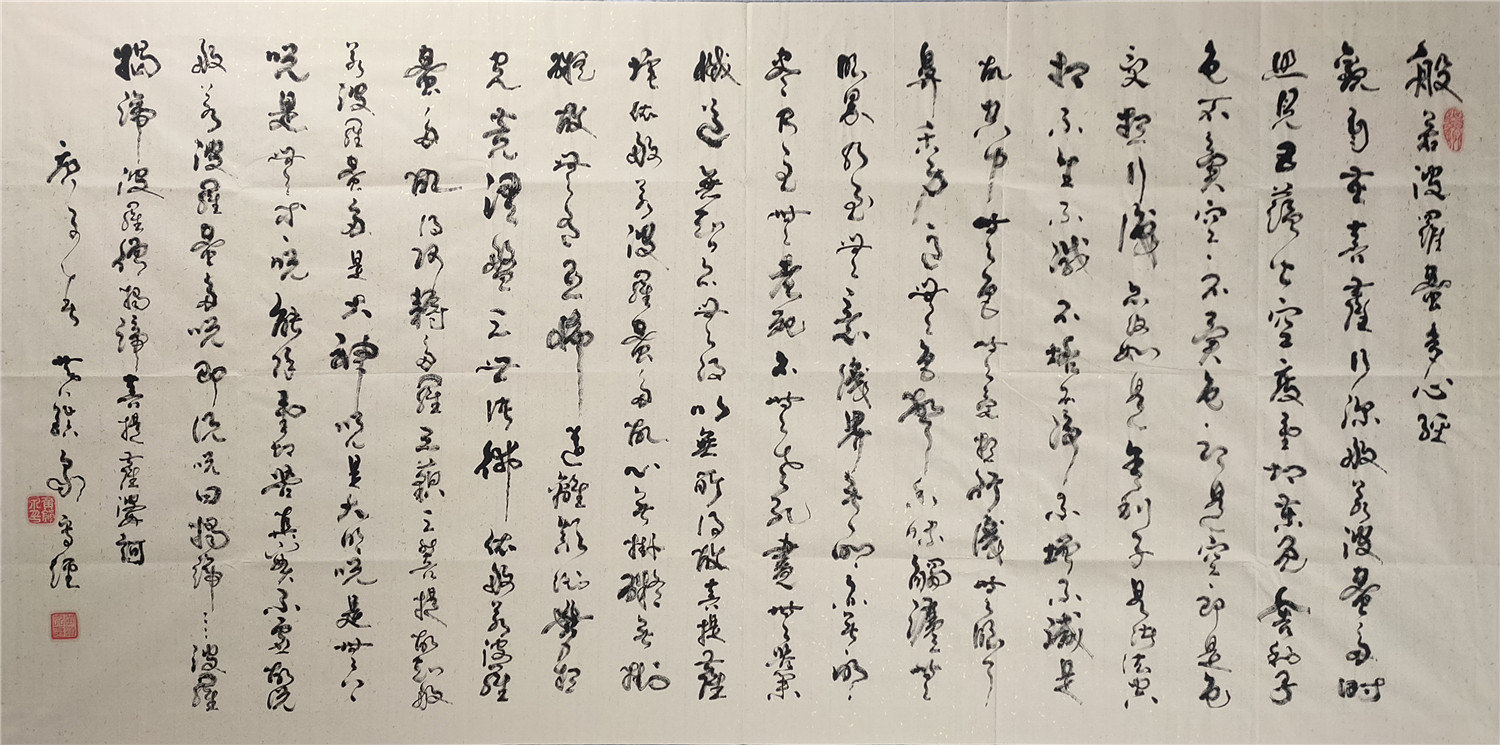 般若波羅蜜多心經
觀自在菩薩行深般若波羅蜜多時
照見五蘊皆空度一切苦厄舍利子
色不異空〻不異色〻即是空〻即是色
受想行識亦復如是舍利子是諸法空
相不生不滅不垢不淨不增不減是
故空中無色無受想行識無眼耳
鼻舌身意無色聲香味觸法無
眼界乃至無意識界無無明亦無無明
盡乃至無老死亦無老死盡無苦集
滅道無智亦無得以無所得故菩提薩
埵依般若波羅蜜多故心無掛礙無掛
礙故無有恐怖遠離顛倒夢想
究竟涅槃三世諸佛依般若波羅
蜜多故得阿耨多羅三藐三菩提故知般
若波羅蜜多是大神咒是大明咒是無上
咒是無等〻咒能除一切苦真實不虛故說
般若波羅蜜多咒即說咒曰揭諦〻〻波羅
揭諦波羅僧揭諦菩提薩婆訶
庚子春 寫經